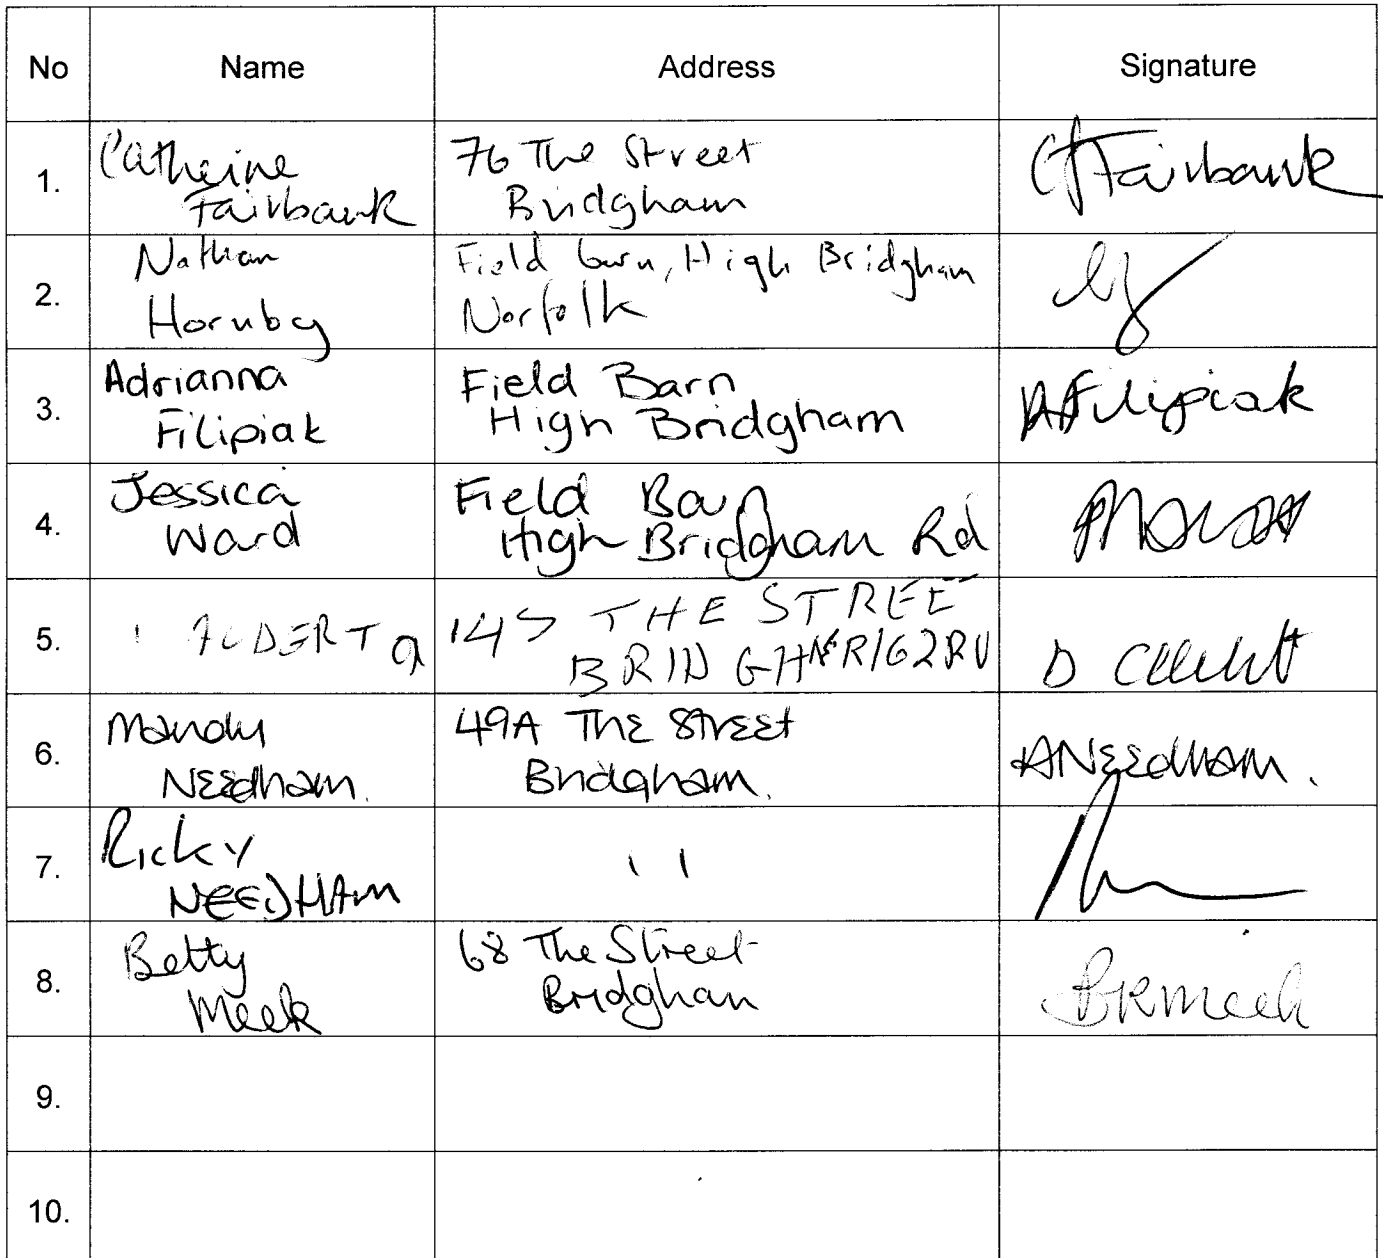 No Name Address Signature
1. Catherine Fairbank 76 The Street Bridgham CFairbank
2. Nathan Hornby Field barn, High Bridgham Norfolk
3. Adrianna Filipiak Field Barn High Bridgham AFilipiak
4. Jessica Ward Field Barn High Bridgham Rd
5. THE STREE BRIN GH NR162RU D
6. Mandy Needham. 49A The Street Bridgham. ANeedham.
7. Ricky NEEDHAm ' '
8. Betty Meek 68 The Street Bridgham BKMeek
9.
10.